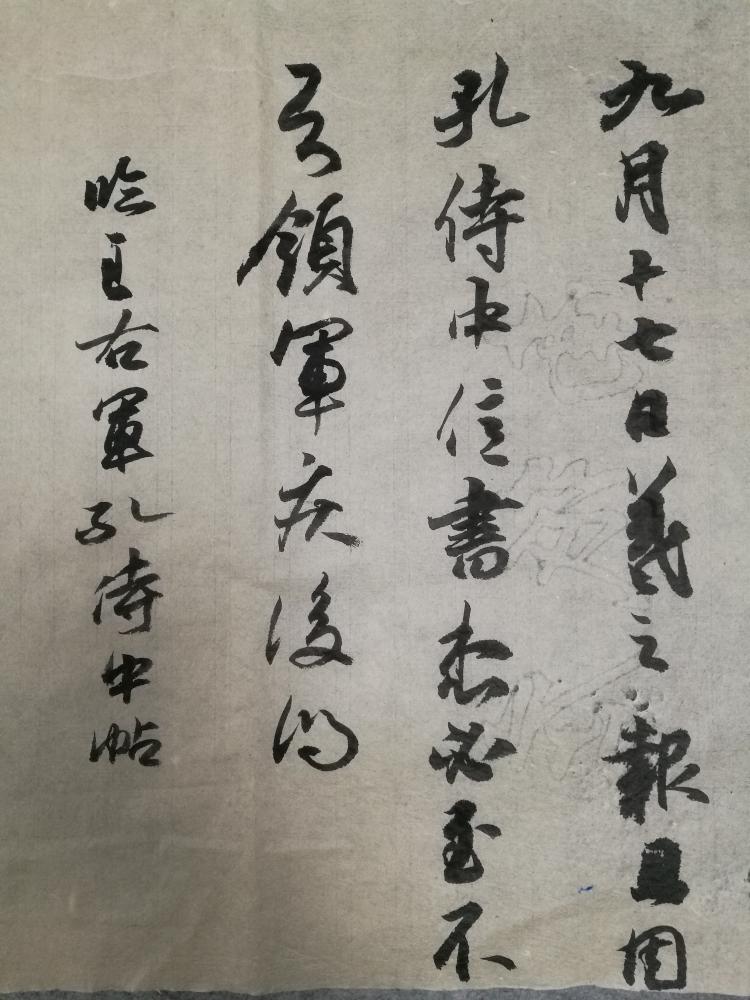 九月十七日羲之報且因
孔侍中信書想必至不
知領軍疾後問
臨王右軍孔侍中帖